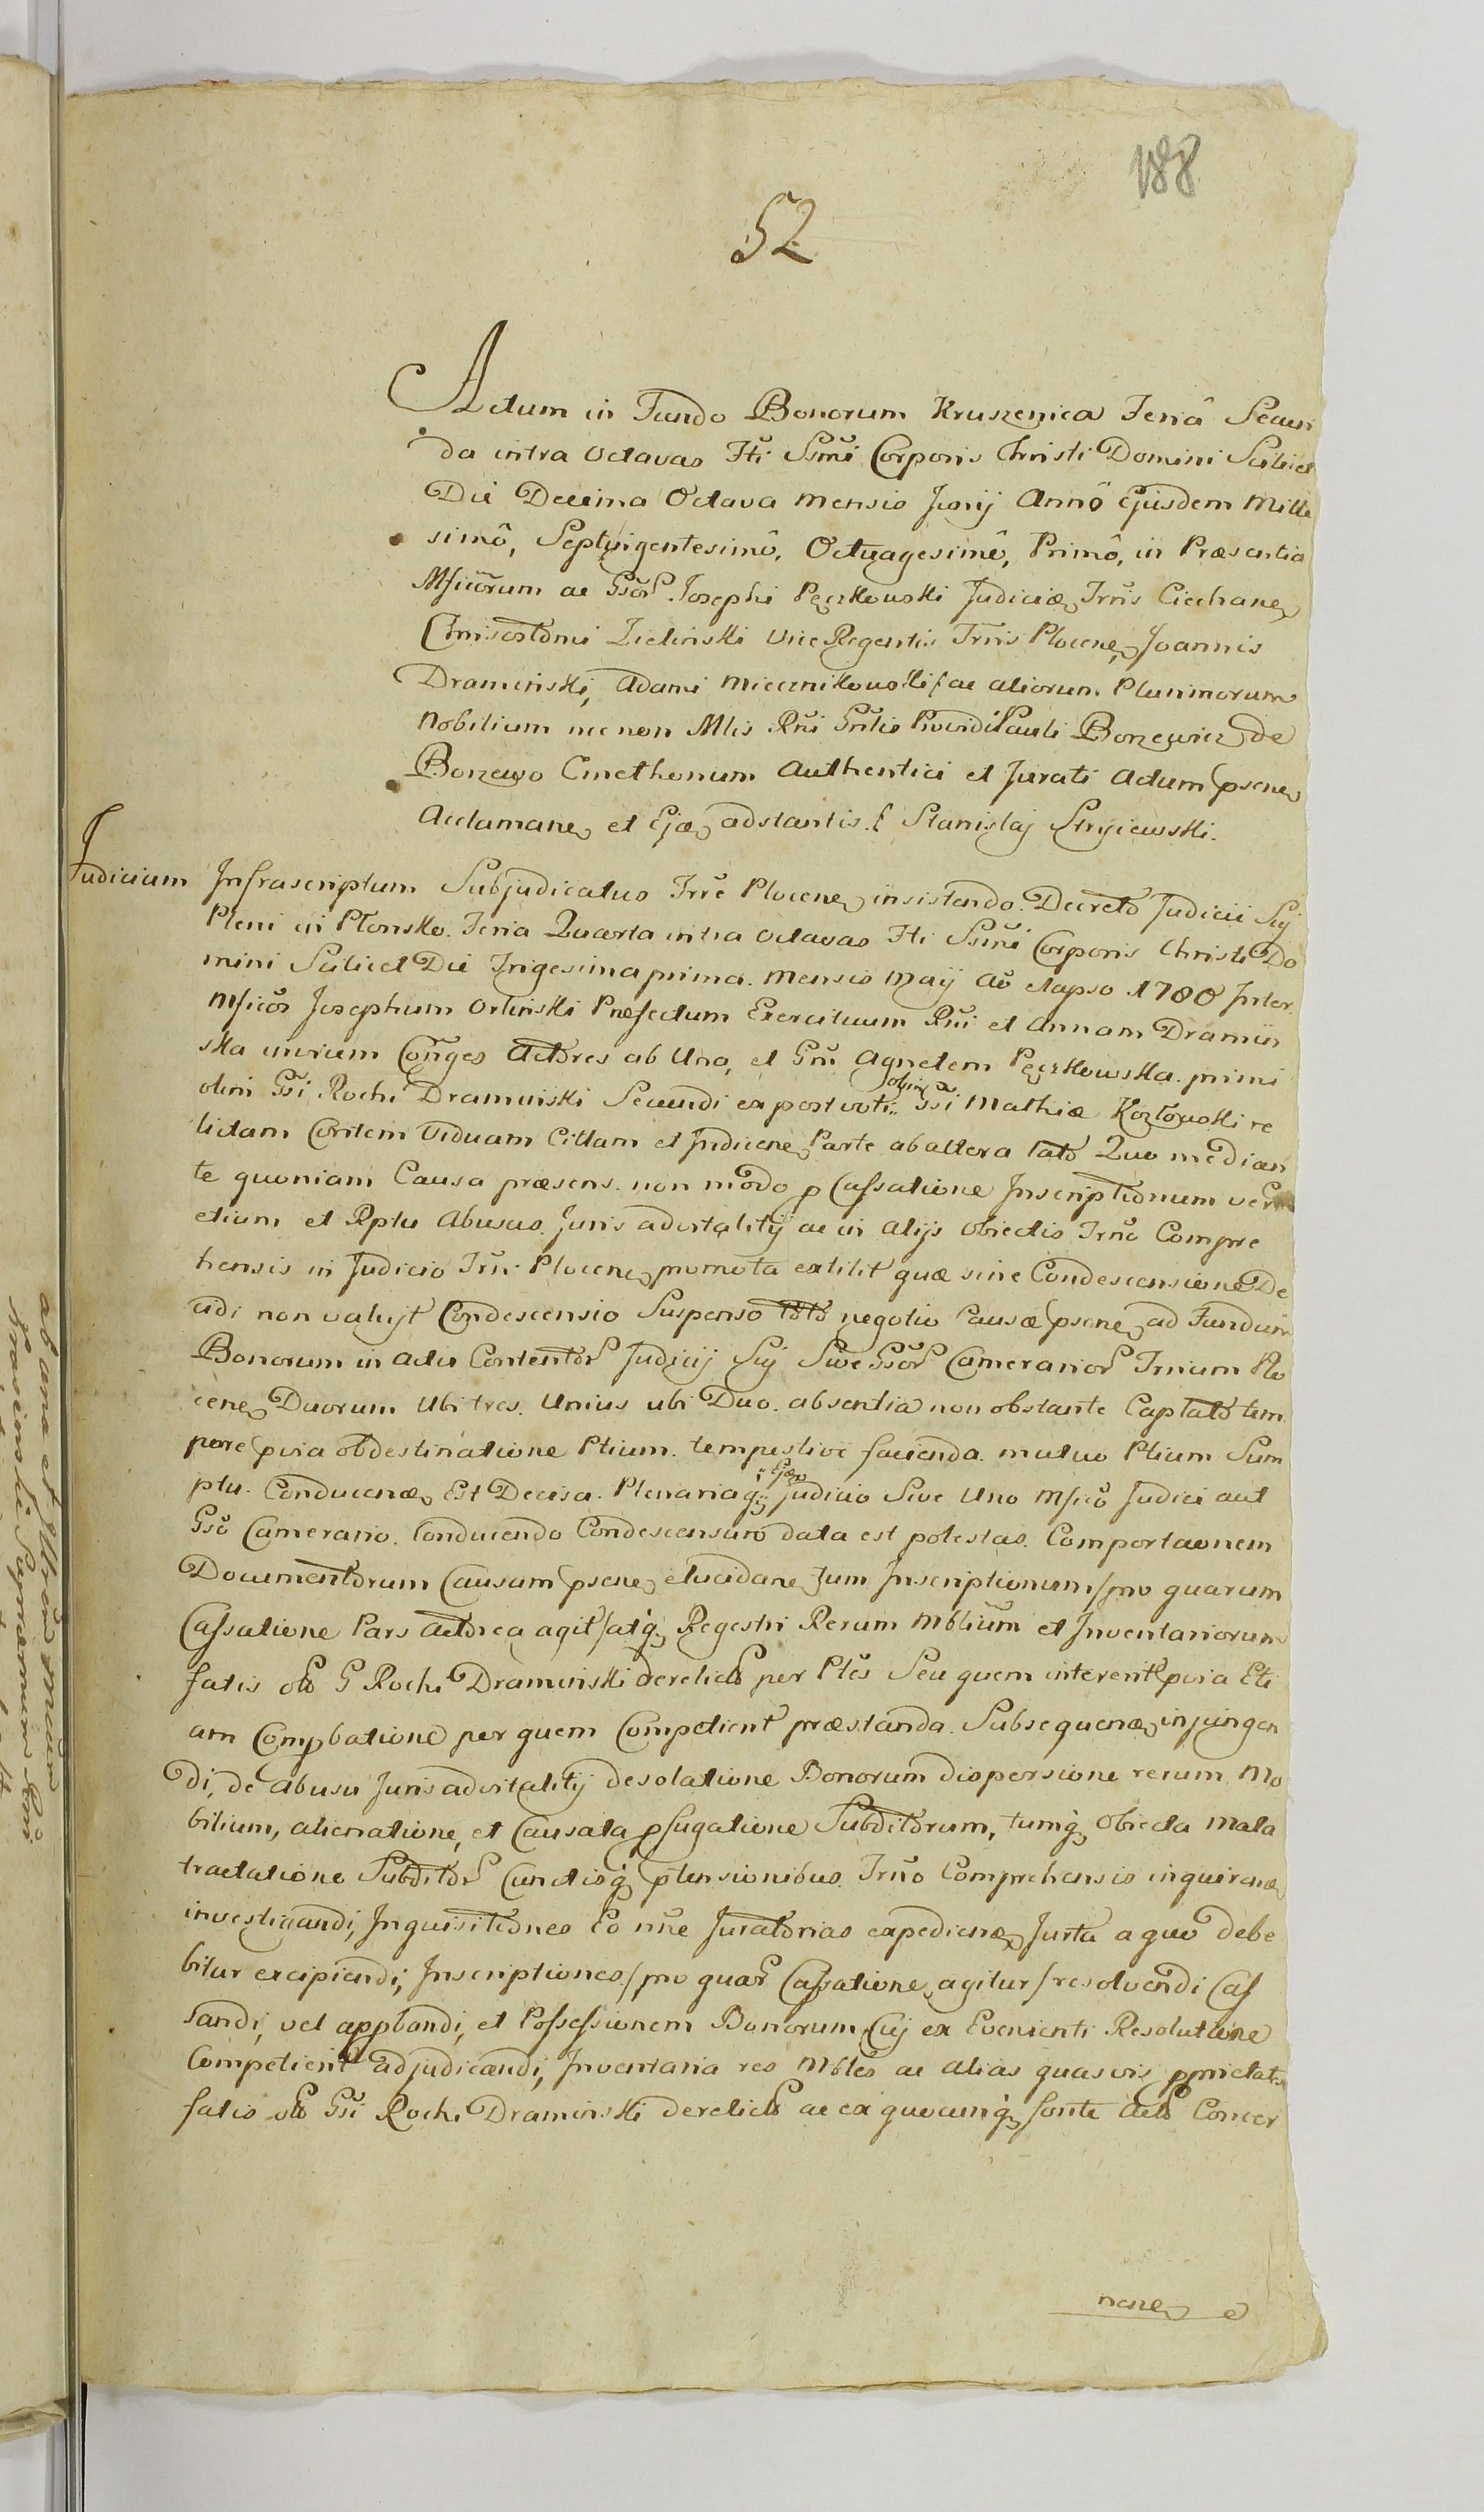 188
52
Actum in Fundo Bonorum Kruszenica Feriâ Secun
da intra Octavas Fti Ssmi Corporis Christi Domini Scilicet
Die Decima Octava Mensis Junij Annô Ejusdem Mille
simô, Septuigentesimô, Octuagesimô, Primô, in Præsentia
Mficorum ac Gsor Josephi Pęczkowski Judiciæ Trris Ciechane
Chrisostomi Zieliński Vice Regentis Trris Plocene Joannis
Dramiński, Adami Miecznikowski / ac aliorum Plurimorum
Nobilium nec non Mlis Rni Gnlis Providi Pauli Borzewicz de
Borzewo Cmethonum Authentici et Jurati Actum psene
Acclamane et Ejæ adstantis. / Stanislaj Stryiewski.
Judicium Infrascriptum Subjudicatus Trre Plocene insistendo Decreto Judicii Sij
Pleni in Płonsko Feria Quarta intra Octavas Fti Ssmi Corporis Christi Do
mini Scilicet Die Trigesima prima Mensis Maij Ao elapso 1780 Inter
Mficos Josephum Orliński Præfectum Exercituum Rni et Annam Dramiń
ska uxorem Conges Actores ab Una, et Gm Agnetem Pęczkowska primi
olim Gsi Rochi Dramiński Secundi ex post voti olim Gsi Mathiæ Kozłowski re
lictam Coritem Viduam Cittam et Indicene Parte ab altera lato Quo median
te quoniam Causa præsens non modo p Cassatione Inscriptionum ver
etium et Rptu Abusus Juris advitalitij ac in alijs obiectis Trno Compre
hensis in Judicio Trri Plocene promota extitit quæ sine Condescensione De
cidi non valuit Condescensio Suspenso toto negotio Causæ psene ad Fundum
Bonorum in Actis Contentor Judicij Sij Sive Gsor Camerarior Trrium Plo
cene Duorum Ubi tres Unius ubi Duo absentia non obstante Captato tem
pore pvia obdestinatione Ptium tempestive facienda mutuo Ptium Sum
ptu Conducenæ Est Decisa. Plenariaq Ejæ Judicio Sive Uno Mfico Judici aut
Gso Camerario Conducendo Condescensuro data est potestas Comportaonem
Documentorum Causam psene elucidane tum Inscriptionum / pro quarum
Cassatione Pars Actorea agit / atq Regestri Rerum Mblium et Inventariorum
fatis olo G Rochi Dramiński derelicto per Ptes Seu quem intererit pvia Eti
am Compbatione per quem Competient præstanda Subsequenæ injungen
di, de Abusu Juris advitalitij desolatione Bonorum dispersione rerum Mo
bilium, alienatione, et Causata pfugatione Subditorum, tumq Obiecta mala
tractatione Subditor Cunctisq ptensionibus Trno Comprehensis inquirenæ
investigandi, Inquisitiones Eo nne Juratorias expedienæ Juxta a quo debe
bitur excipiendi; Inscriptiones / pro quar Cassatione agitur / resolvendi Cas
sandi, vel appbandi, et Possessionem Bonorum Cuj ex Evenienti Resolutione
Competient Adjudicandi, Inventaria res Mbles ac alias quasvis pprietates
fatis olo Gsi Rochi Dramiński derelicto ac ex quocunq fonte Acto Concer
nene